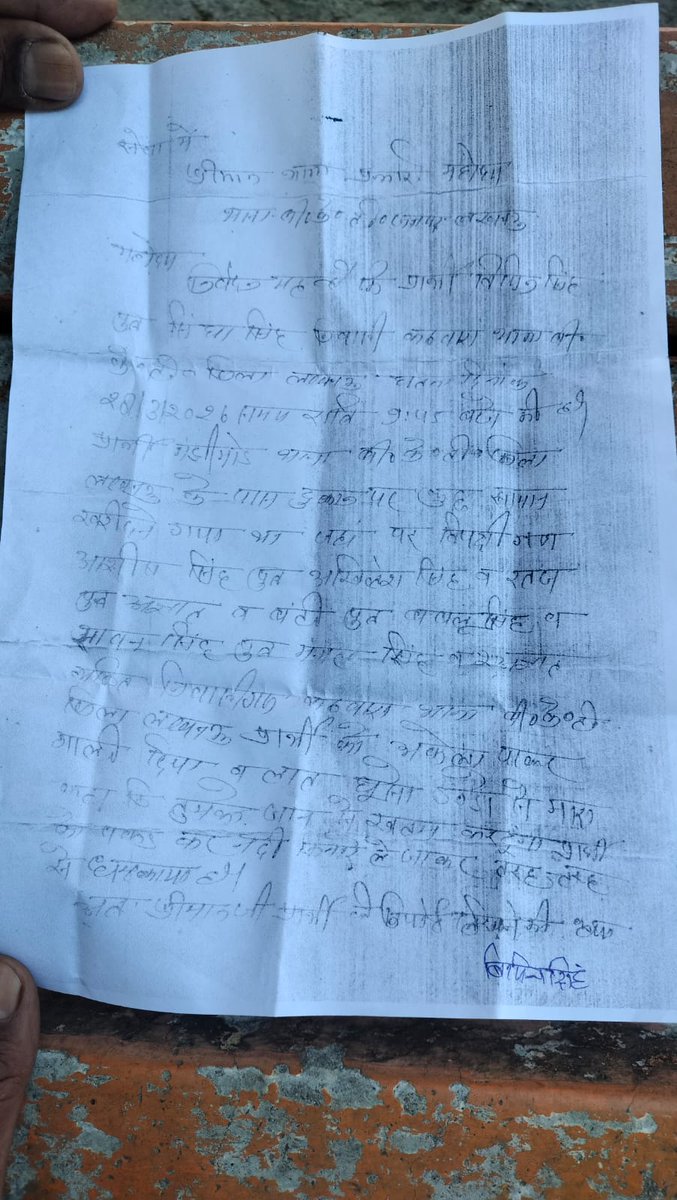 सेवा में
श्रीमान थाना प्रभारी महोदय
थाना बी०के०टी० जनपद लखनऊ
महोदय
निवेदन है कि प्रार्थी विपिन सिंह
पुत्र सिंह निवासी कठवारा थाना बी०
के०टी० जिला लखनऊ घटना दिनांक
28/3/2026 समय रात्रि 9:45 बजे की है।
प्रार्थी थाना बी०के०टी० जिला
लखनऊ के पास दुकान पर कुछ सामान
खरीदने गया था जहां पर विपक्षी गण
आशीष सिंह पुत्र अखिलेश सिंह व
पुत्र अज्ञात व बंटी पुत्र बबलू सिंह व
सावन सिंह पुत्र सिंह व अज्ञात
निवासीगण कठवारा थाना बी०के०टी०
जिला लखनऊ प्रार्थी को अकेला पाकर
गाली दिया व लात घूसा डन्डो से मारा
कहा कि तुमको जान से खत्म कर दूंगा प्रार्थी
को पकड़ कर नदी किनारे ले जाकर तरह तरह
से धमकाया है।
अतः श्रीमान जी प्रार्थी की रिपोर्ट लिखने की कृपा
विपिन सिंह